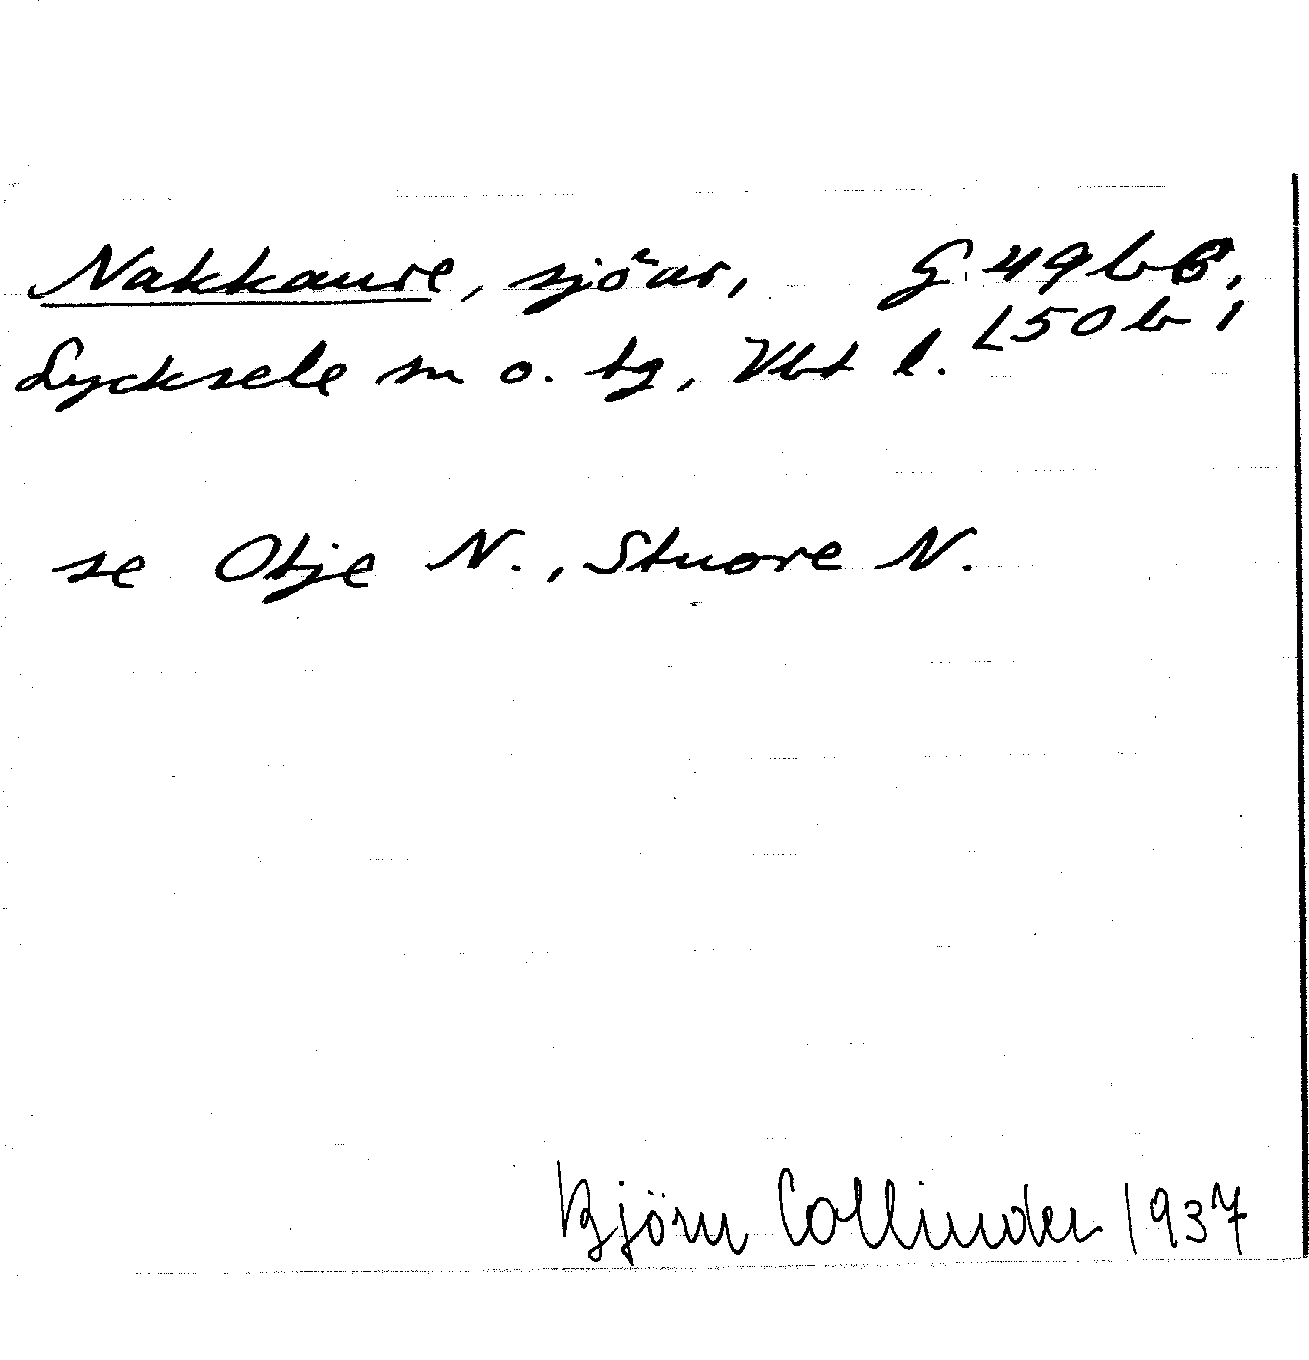 Nakkaure, sjöar, G 49 b B,
Lycksele sn o. tg, Vbt l. L 50 b 1
se Otje N., Stuore N.
Björn Collinder 1937